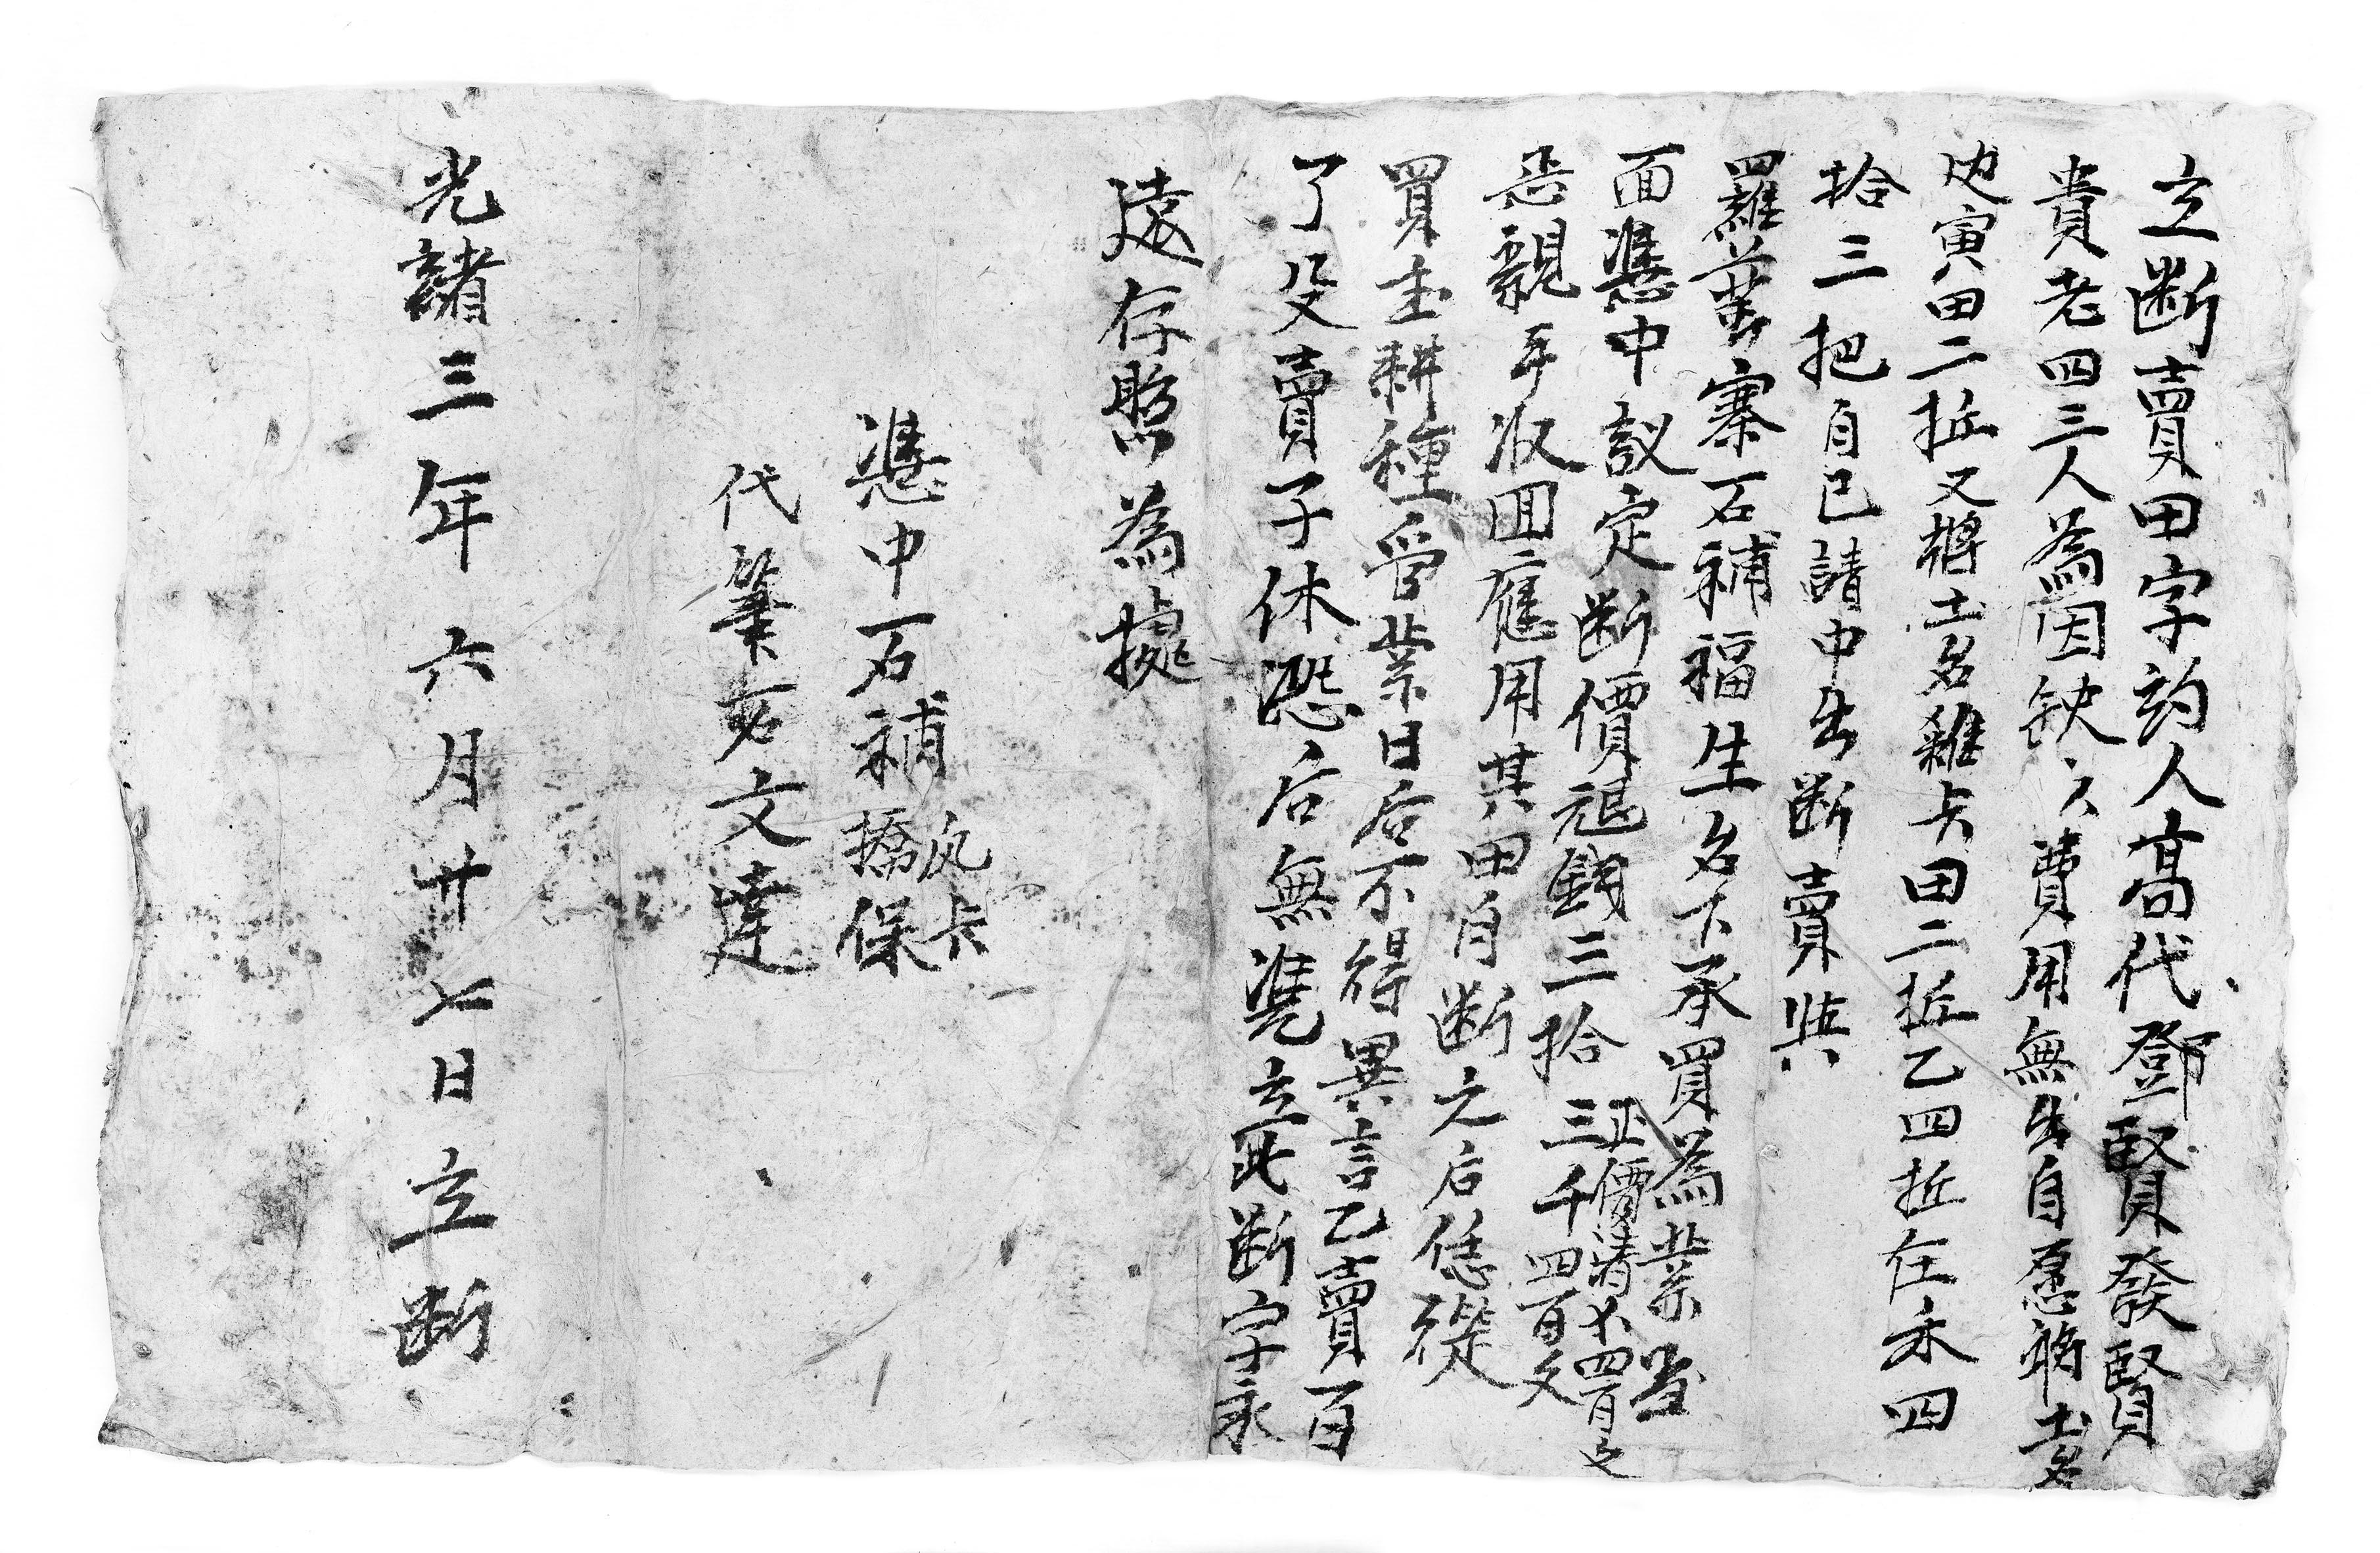 立断賣田字約人高代鄧賢發賢
貴老四三人為因缺少費用無出自愿将土名
寅田二坵又將土名雞卡田二坵乙四坵在禾四
拾三把自己請中出断賣與
羅薑寨石補福生名下承買為業當
面憑中議定断價元錢三拾三千四百文
親手收回應用其田自断之后恁從
買主耕種管業日后不得異言乙賣百
了父賣子休恐后無凴立此断字永
遠存照為據
憑中石補
風卡
橋保
代筆文達
光諸三年六月廿七日立断